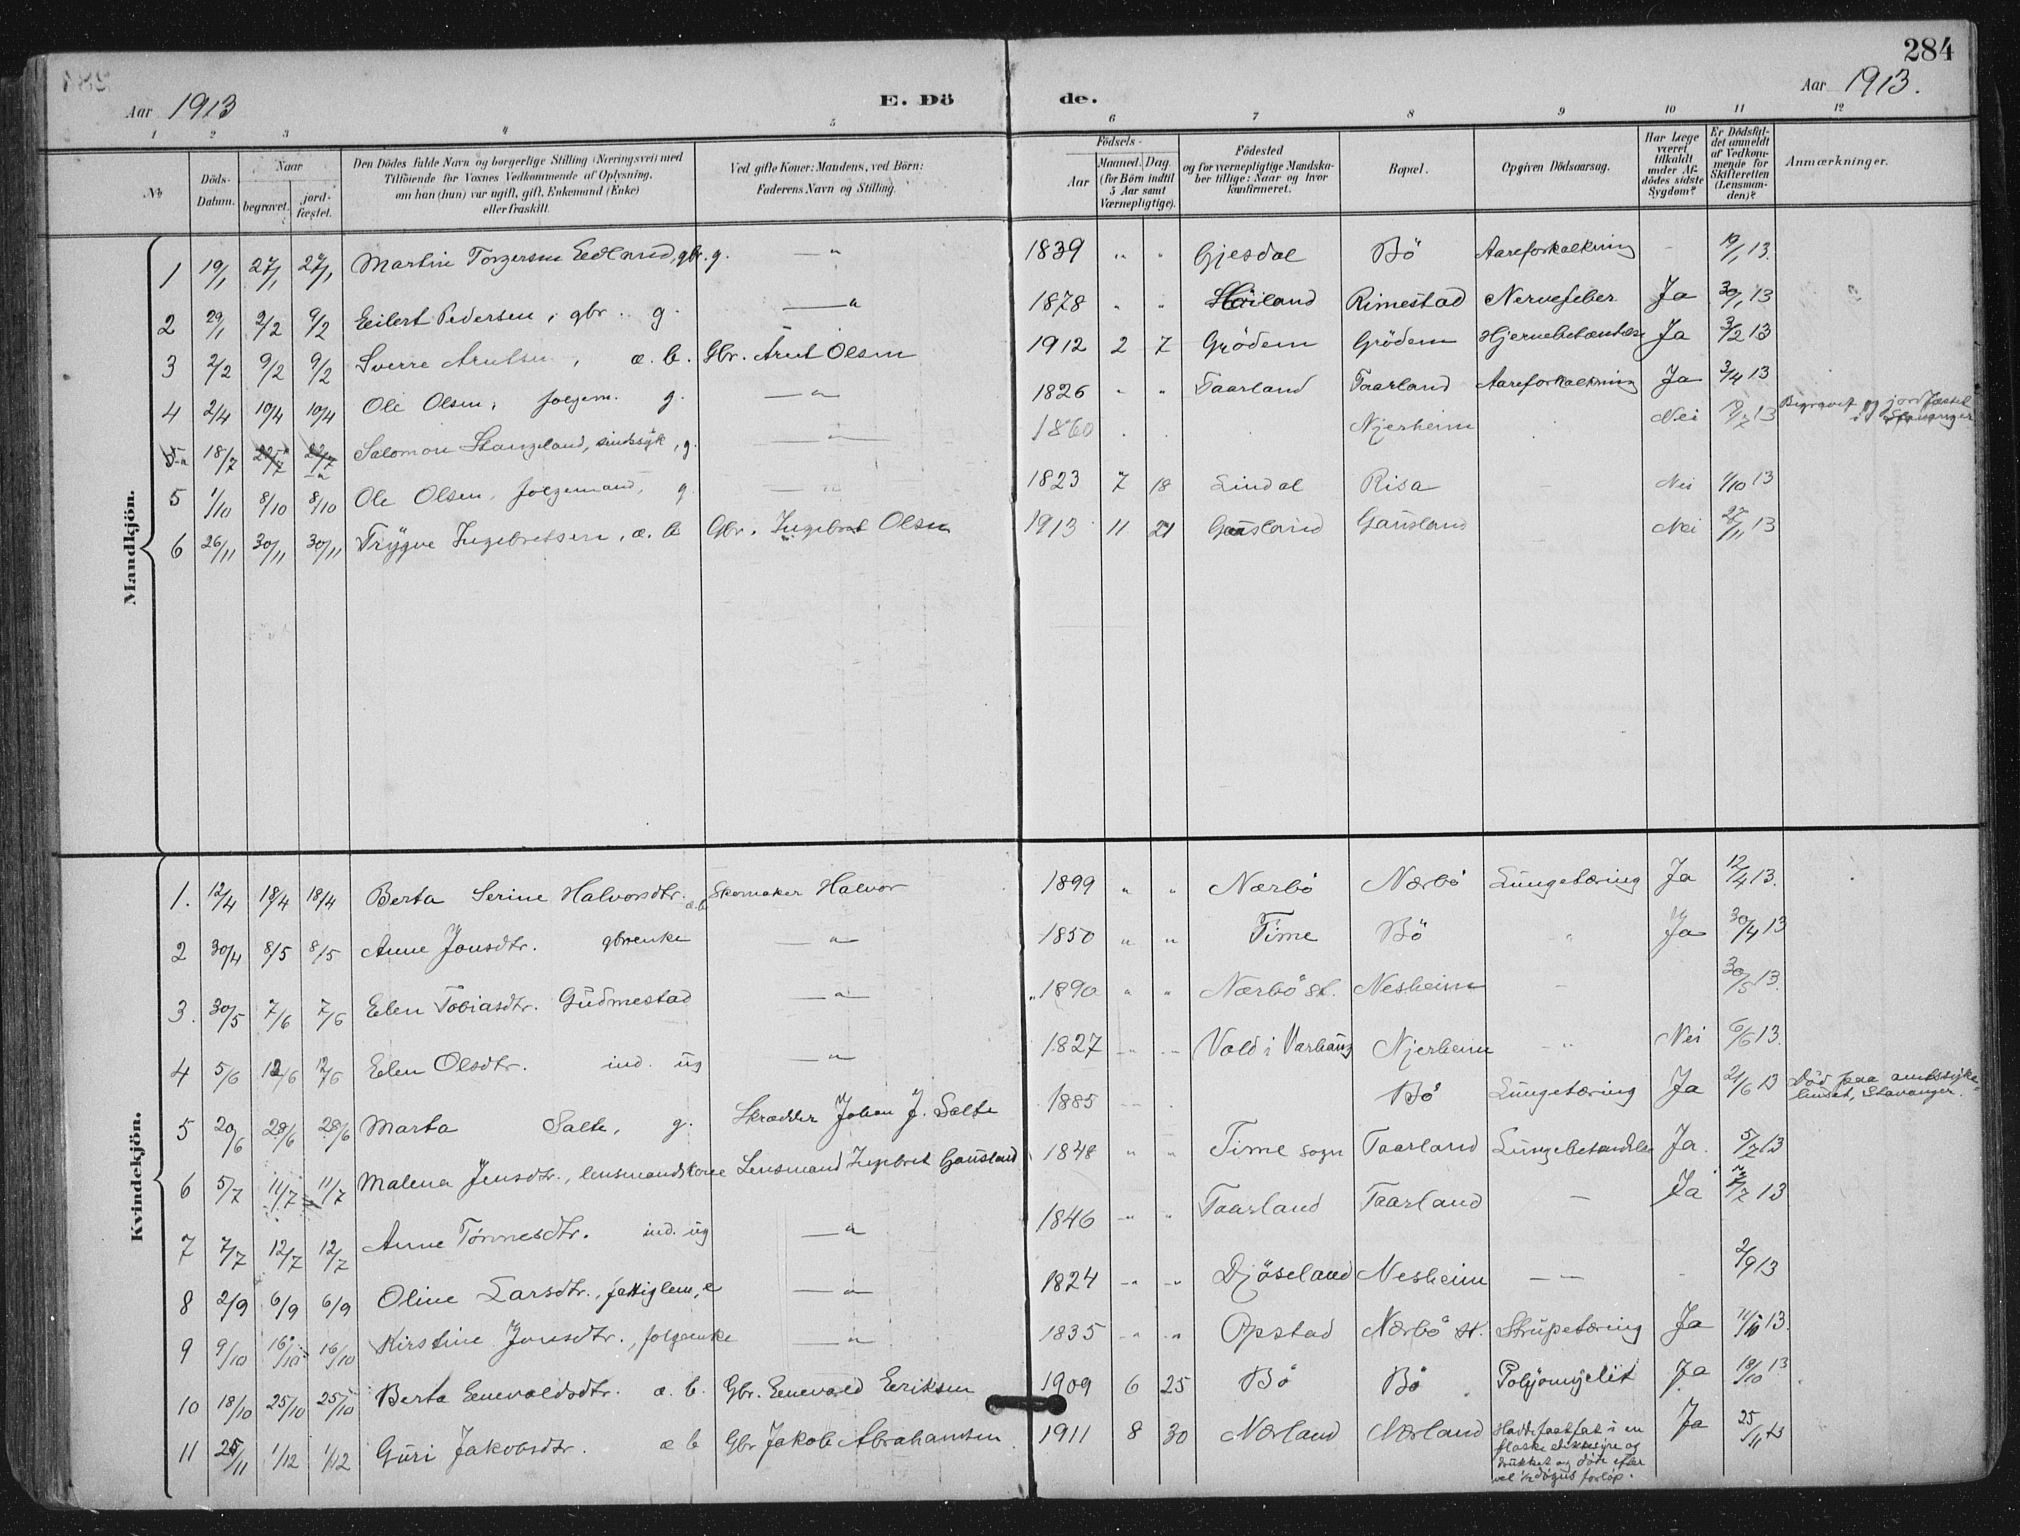 284
Aar 1913
E. Dö de.
Aar 1913.
1 2 3 4 5 6 7 8 9 10 11 12
No
Döds-Datum.
Naar
begravet. jord-fæstet.
Den Dödes fulde Navn og borgerlige Stilling (Næringsvei) med
Tilföiende for Voxnes Vedkommende af Oplysning,
om han (hun) var ugift, gift, Enkemand (Enke)
eller fraskilt.
Ved gifte Koner: Mandens, ved Börn:
Faderens Navn og Stilling.
Födsels-
Aar Maaned. Dag.
(for Börn indtil
5 Aar samt
Værnepligtige).
Födested
og for værnepligtige Mandska-
ber tillige: Naar og hvor
konfirmeret.
Bopæl.
Opgiven Dödsaarsag.
Har Læge
været
tilkaldt
under Af-
dödes sidste
Sygdom?
Er Dödsfal-
det anmeldt
af Vedkom-
mende for
Skifteretten
(Lensman-
den)?
Anmærkninger.
Mandkjön.
1 19/1 27/1 27/1 Martin Torgersen Edland, gbr. g. — " 1839 " " Gjesdal Bö Aareforkalkning - 19/1 13.
2 29/1 9/2 9/2 Eilert Pedersen, gbr. g. — " 1878 " " Höiland Rimestad Nervefeber Ja 30/1 13
3 2/2 9/2 9/2 Sverre Arntsen, æ. b. Gbr. Arnt Olsen 1912 2 7 Grödem Grödem Hjernebetændelse Ja 3/2 13
4 2/4 10/4 10/4 Ole Olsen, folgem. g. — " 1826 " " Taarland Taarland Aareforkalkning Ja 3/4 13
5a 18/7 22/7 22/7 Salomon Stangeland, sindssyk, g. — " 1860 . . Njærheim Nei 19/7 13 Begravet og jordfæstet i Stavanger
5 1/10 8/10 8/10 Ole Olsen, folgemand, g — " 1823 7 18 Lindal Risa - Nei 1/10 13
6 26/11 30/11 30/11 Trygve Ingebretsen, æ. b Gbr. Ingebret Olsen 1913 11 21 Gausland Gausland Nei 27/11 13
Kvindekjön.
1. 12/4 18/4 18/4 Berta Serine Halvorsdtr. æ.b Skomaker Halvor 1899 " " Nærbö Nærbö Lungetæring Ja 12/4 13.
2 30/4 8/5 8/5 Anne Jonsdtr. gbrenke — " 1850 " " Time Bö " Ja 30/4 13
3. 30/5 7/6 7/6 Elen Tobiasdtr. Gudmestad — " 1890 " " Nærbö st. Nesheim - 30/5 13.
4 5/6 12/6 12/6 Elen Olsdtr. ind. ug — " 1827 " " Vold i Varhaug Njerheim - " Nei 6/6 13.
5 20/6 28/6 28/6 Marta Salte, g. Skrædder Johan J. Salte 1885 — Bö Lungetæring Ja 21/6 13 Död paa amtssyke-
huset, Stavanger.
6 5/7 11/7 11/7 Malena Jensdtr., lensmandskone Lensmand Ingebret Gausland 1848 " " Time sogn Taarland Lungebetændelse Ja. 5/7 13
7 7/7 12/7 12/7 Anne Tönnesdtr. ind. ug — " 1846 " " Taarland Taarland — Ja 7/7 13
8 2/9 6/9 6/9 Oline Larsdtr., fattiglem, e — " 1824 " " Djöseland Nesheim — - 2/9 13
9 9/10 16/10 16/10 Kirstine Jonsdtr., folgenke — " 1835 " " Opstad Nærbö st. Strupetæring Ja 11/10 13.
10 18/10 25/10 25/10 Berta Enevaldsdtr. æ. b. Gbr. Enevald Eriksen 1909 6 25 Bö Bö Polyomyelit Ja 18/10 13
11 25/11 1/12 1/12 Guri Jakobsdtr. æ b Gbr Jakob Abrahamsen 1911 8 30 Nærland Nærland Hadde faat fat i en
flaske eddiksyre og
drukket og döde efter
vel ½ dögns forlöp. Ja 25/11 13